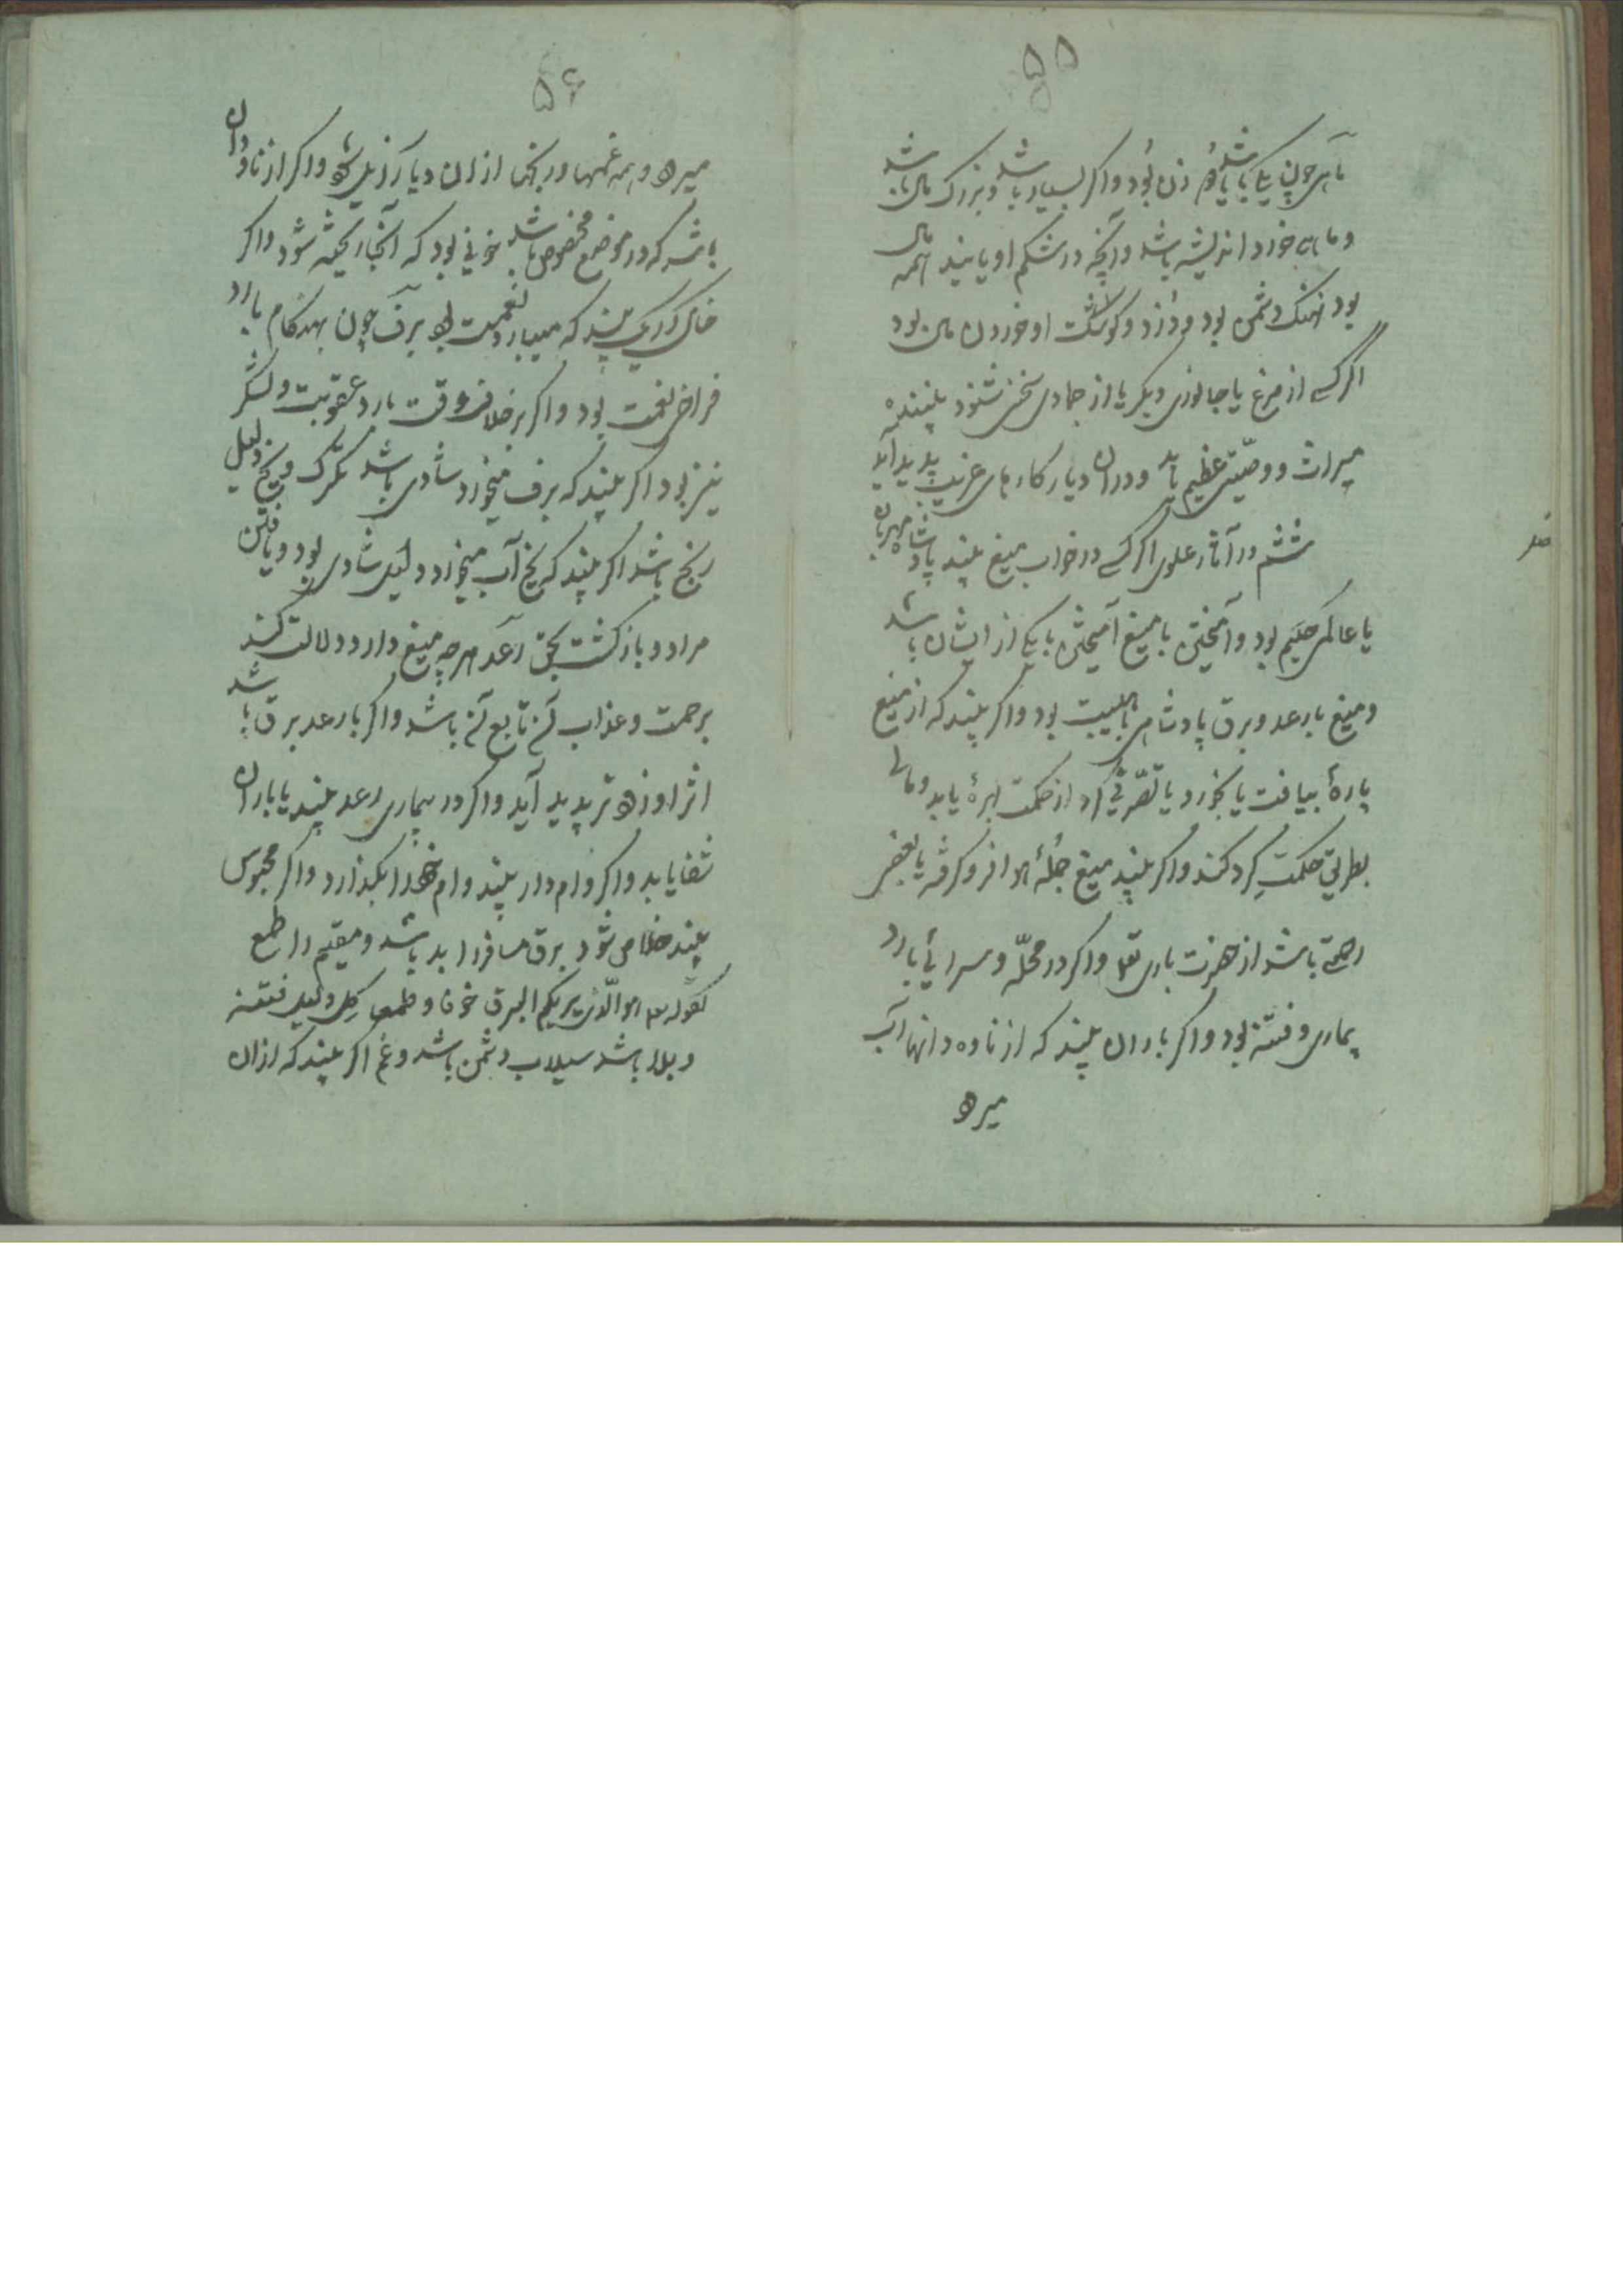 ۵۵
ماهی چون یکی باشد یا دوم زن بود واکر بسیار باشد وبزرک مال باشد
وماهی خورد اندیشه باشد وآنچه در شکم او یابند همه مال
بود نهنک دشمن بود ودزد وکوشت او خوردن مال بود
اکر کسے از مرغ یا جانوری دیکر یا از جمادی سخن شنود بیننده
میراث ووصیّتی عظیم یابد ودران دیار کارهای غریب پدید آید
ششم در آثار علوی اکر کسے در خواب میغ بیند پادشاه مهربان
یا عالمی حکیم بود وآمیختن با میغ آمیختن با یکی از ایشان باشد
ومیغ با رعد وبرق پادشاهی باهیبت بود واکر بیند که از میغ
پارهٔ بیافت یا بخورد یا تصّرفی کرد از حکمت بهرهٔ یابد ومالے
بطریق حکمت کرد کند واکر بیند میغ جملهٔ هوا فرو کرفته یا بعضے
رحمتے باشد از حضرت باری تعا واکر در محلّه وسرائی بارد
بیماری وفتنه بود واکر باران بیند که از ناودانها آب
میرود
فصل
۵۶
میرود وهمه غمها ورنجها ازان دیار زایل شود واکر از ناودان
باشد که در موضع مخصوص باشد خونی بود که آنجا ریخته شود واکر
خاک وریک بیند که میبارد نعمت بود برف چون بهنکام بارد
فراخی نعمت بود واکر بر خلاف وقت بارد عقوبت ولشکر
نیز بود اکر بیند که برف میخورد شادی باشد تکرک ویخ دلیل
رنج باشد اکر بیند که یخ آب میخورد دلیل شادی بود ویافتن
مراد وبازکشت بحق رعد هرچه میغ دارد دلالت کند
برحمت وعذاب آن تابع آن باشد واکر با رعد برق باشد
اثر او زودتر پدید آید واکر در بیماری رعد بیند یا باران
شفا یابد واکر وام دار بیند وام خود را بکذارد واکر محبوس
بیند خلاص شود برق مسافر را بد باشد ومقیم را طمع
لقوله تعا هو الّذی یریکم البرق خوفا وطمعا کل دلیل فتنه
وبلا باشد سیلاب دشمن باشد وغم اکر بیند که ازان